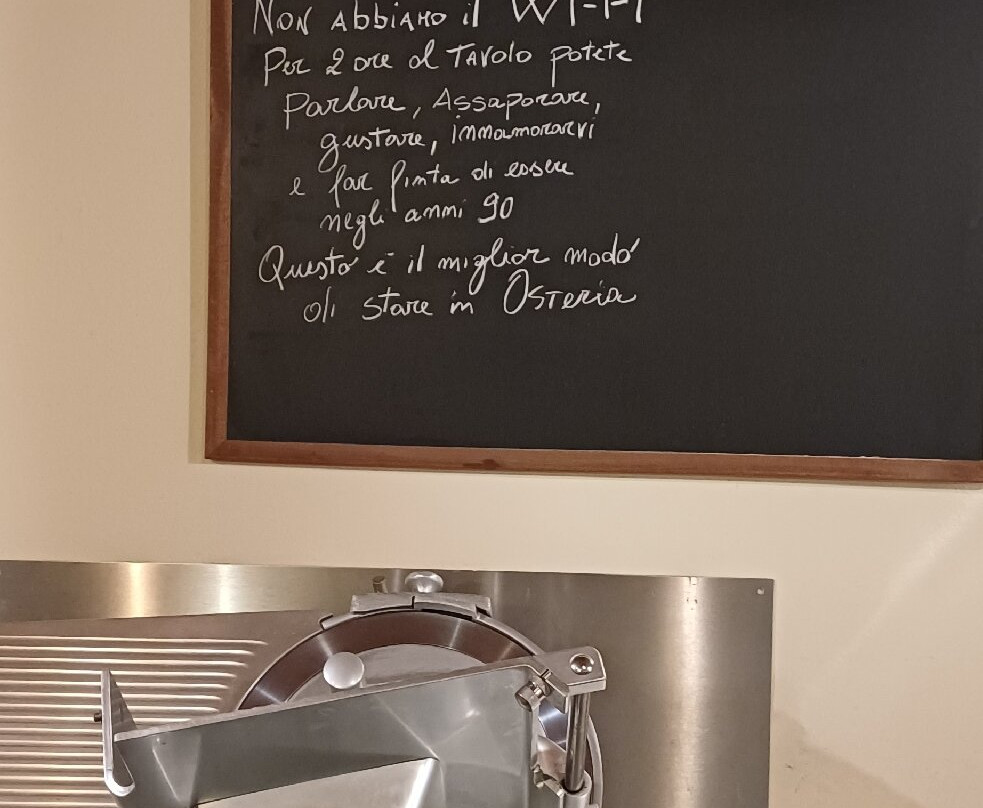 NON AbbiAMO il WI-FI
Per 2 ore al TAVOLO potete
Parlare, Assaporare,
gustare, innamorarvi
e far finta di essere
negli anni 90
Questo è il miglior modo
di stare in OSTERIA